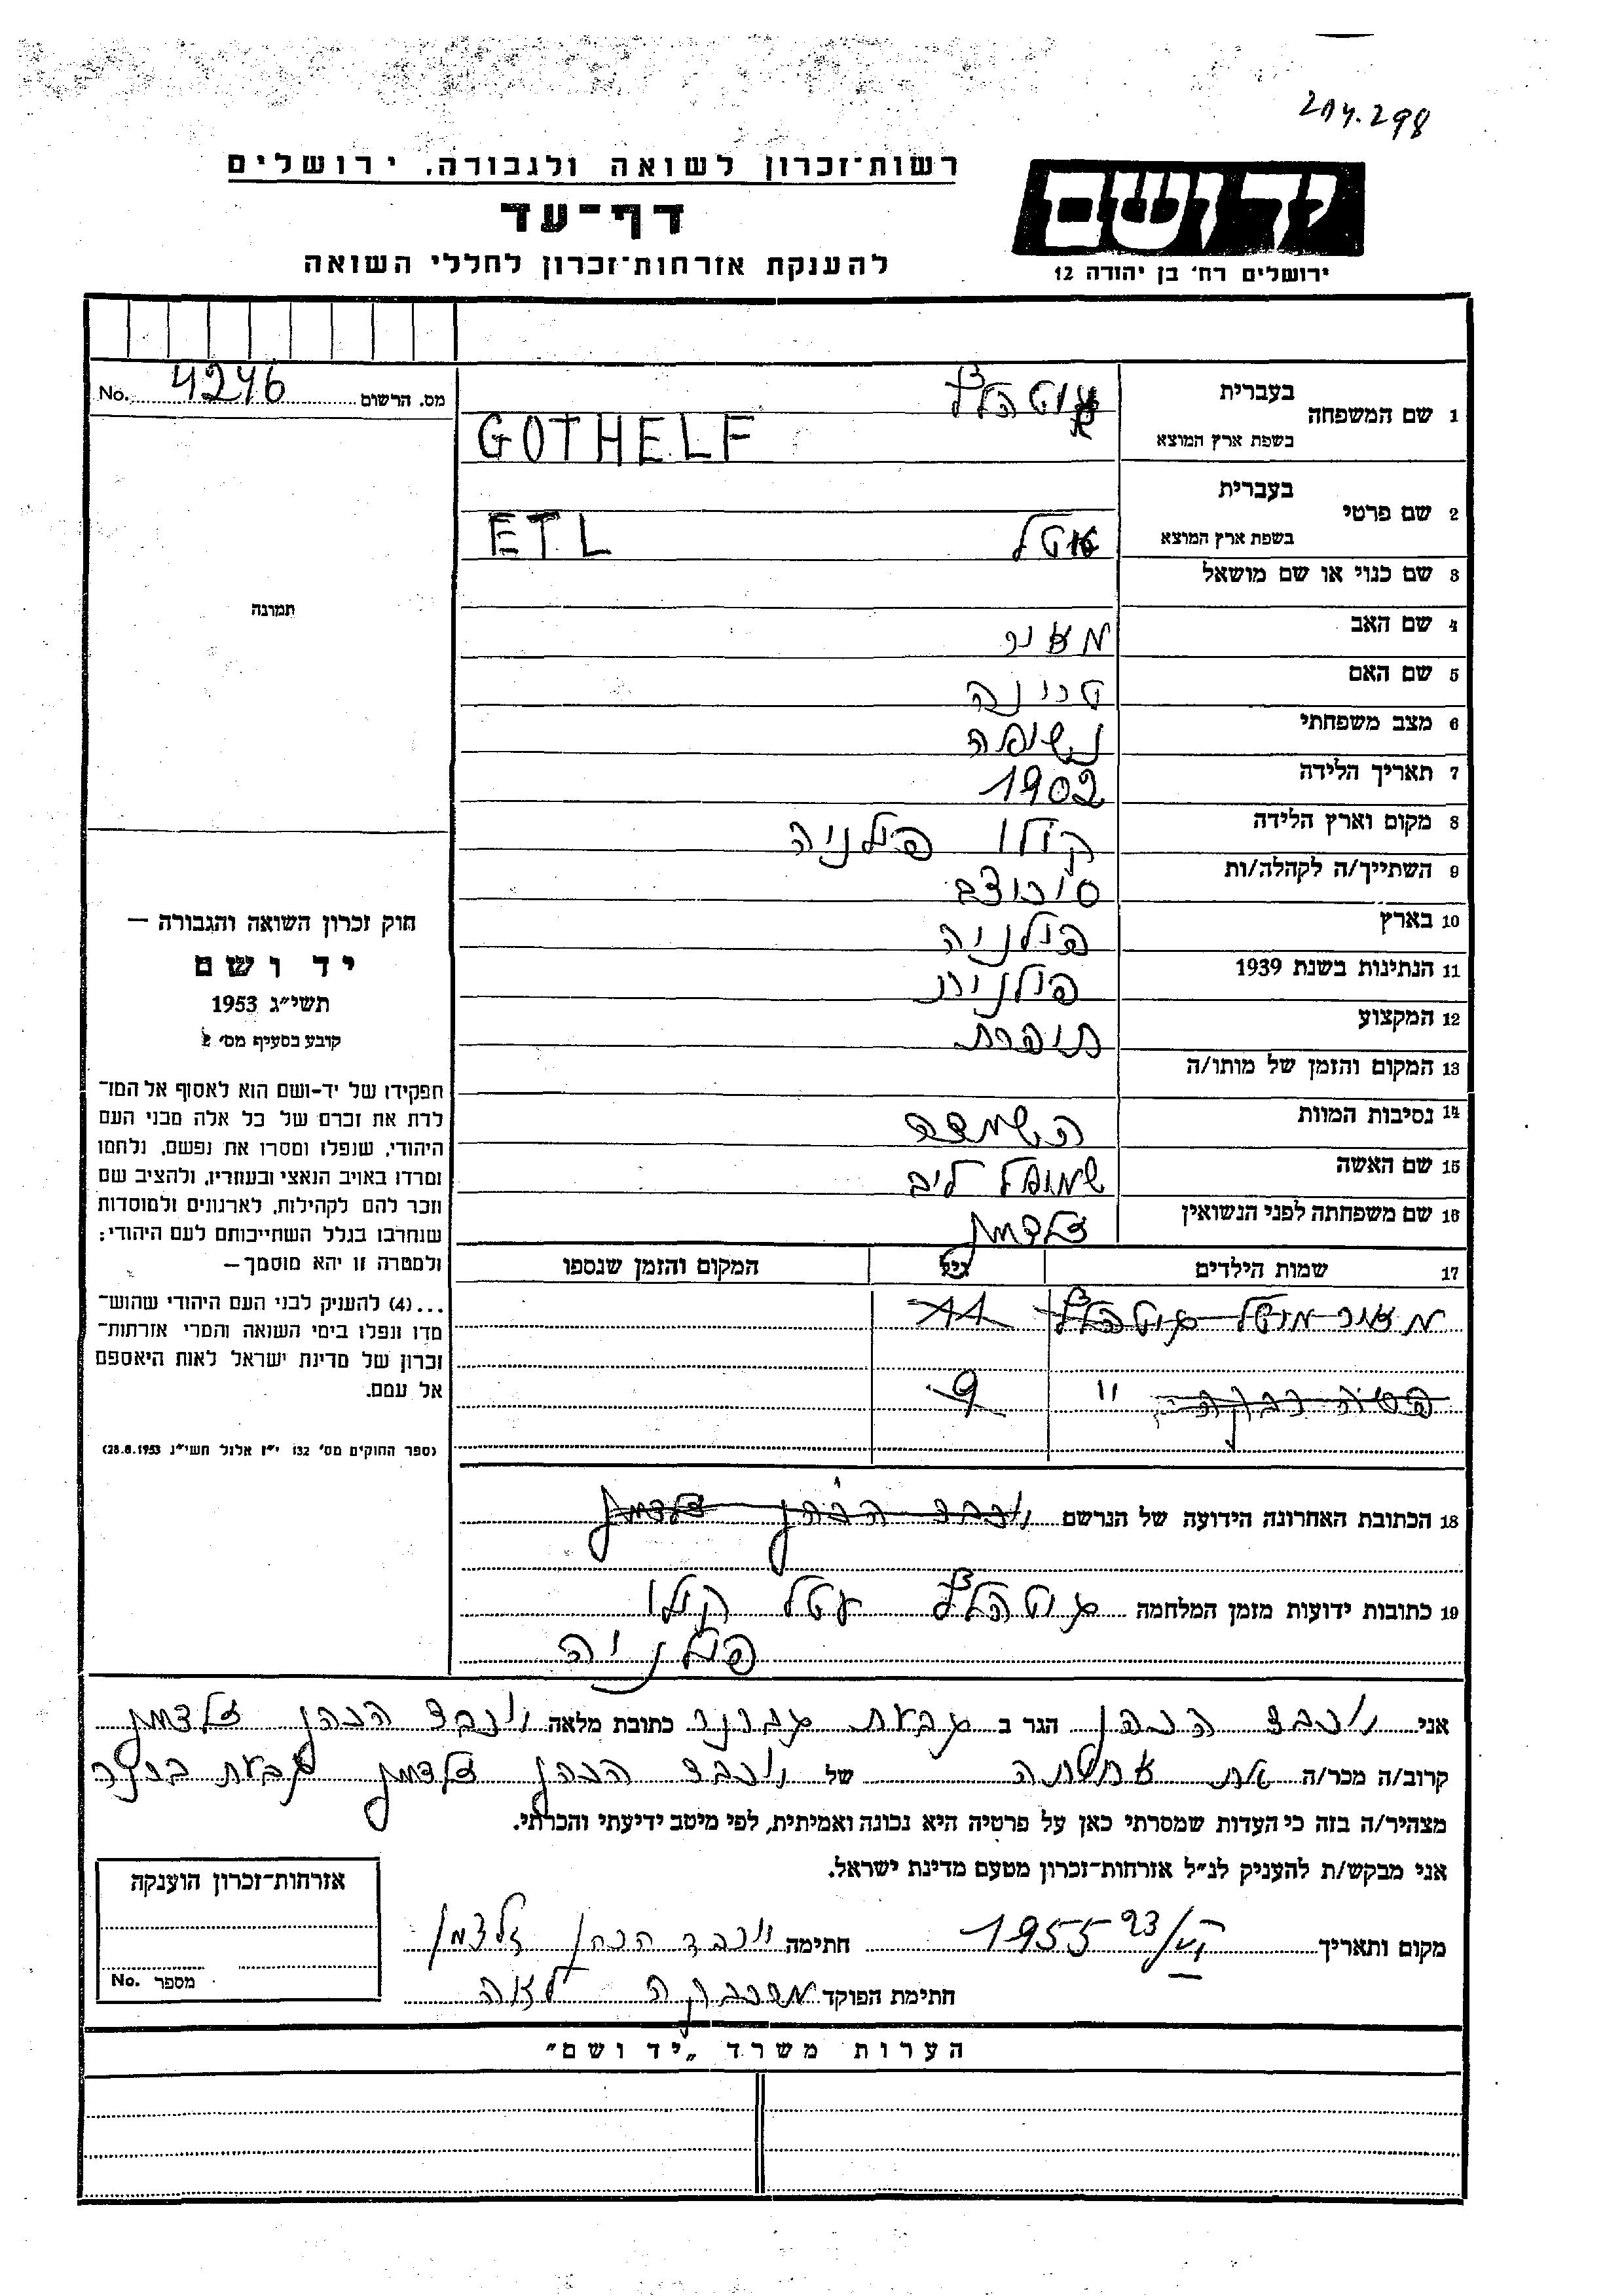 214.298
רשות־זכרון לשואה ולגבורה, ירושלים
דף־עד
להענקת אזרחות־זכרון לחללי השואה
יד ושם
ירושלים רח' בן יהודה 12
מס. הרשום 4246 No.
1 שם המשפחה בעברית גוטהלף
בשפת ארץ המוצא GOTHELF
2 שם פרטי בעברית
בשפת ארץ המוצא אטל ETL
3 שם כנוי או שם מושאל
4 שם האב מאיר
5 שם האם
6 מצב משפחתי נשואה
7 תאריך הלידה 1902
8 מקום וארץ הלידה קולו פולניה
9 השתייך/ה לקהלה/ות
10 בארץ פולניה
11 הנתינות בשנת 1939 פולנית
12 המקצוע תופרת
13 המקום והזמן של מותו/ה
14 נסיבות המוות השמדה
15 שם האשה שמואל ליב
16 שם משפחתה לפני הנשואין זלצמן
17 שמות הילדים גיל המקום והזמן שנספו
מאיר גוטהלף 11
רבקה " 9
18 הכתובת האחרונה הידועה של הנרשם יוכבד הכהן זלצמן
19 כתובות ידועות מזמן המלחמה גוטהלף עטל קולו
פולניה
תמונה
חוק זכרון השואה והגבורה —
יד ושם
תשי״ג 1953
קובע בסעיף מס' 2
תפקידו של יד-ושם הוא לאסוף אל המו־
לדת את זכרם של כל אלה מבני העם
היהודי, שנפלו ומסרו את נפשם, נלחמו
ומרדו באויב הנאצי ובעוזריו, ולהציב שם
וזכר להם לקהילות, לארגונים ולמוסדות
שנחרבו בגלל השתייכותם לעם היהודי;
ולמטרה זו יהא מוסמך —
...(4) להעניק לבני העם היהודי שהוש־
מדו ונפלו בימי השואה והמרי אזרחות־
זכרון של מדינת ישראל לאות היאספם
אל עמם.
(ספר החוקים מס' 132 י״ז אלול תשי״ג 28.8.1953)
אני יוכבד הכהן הגר ב גבעת ברנר כתובת מלאה יוכבד הכהן זלצמן
קרוב/ה מכר/ה של יוכבד הכהן זלצמן גבעת ברנר
מצהיר/ה בזה כי העדות שמסרתי כאן על פרטיה היא נכונה ואמיתית, לפי מיטב ידיעתי והכרתי.
אני מבקש/ת להעניק לנ״ל אזרחות־זכרון מטעם מדינת ישראל.
מקום ותאריך 23/VI 1955 חתימה יוכבד הכהן זלצמן
חתימת הפוקד
אזרחות־זכרון הוענקה
מספר No.
הערות משרד „יד ושם"